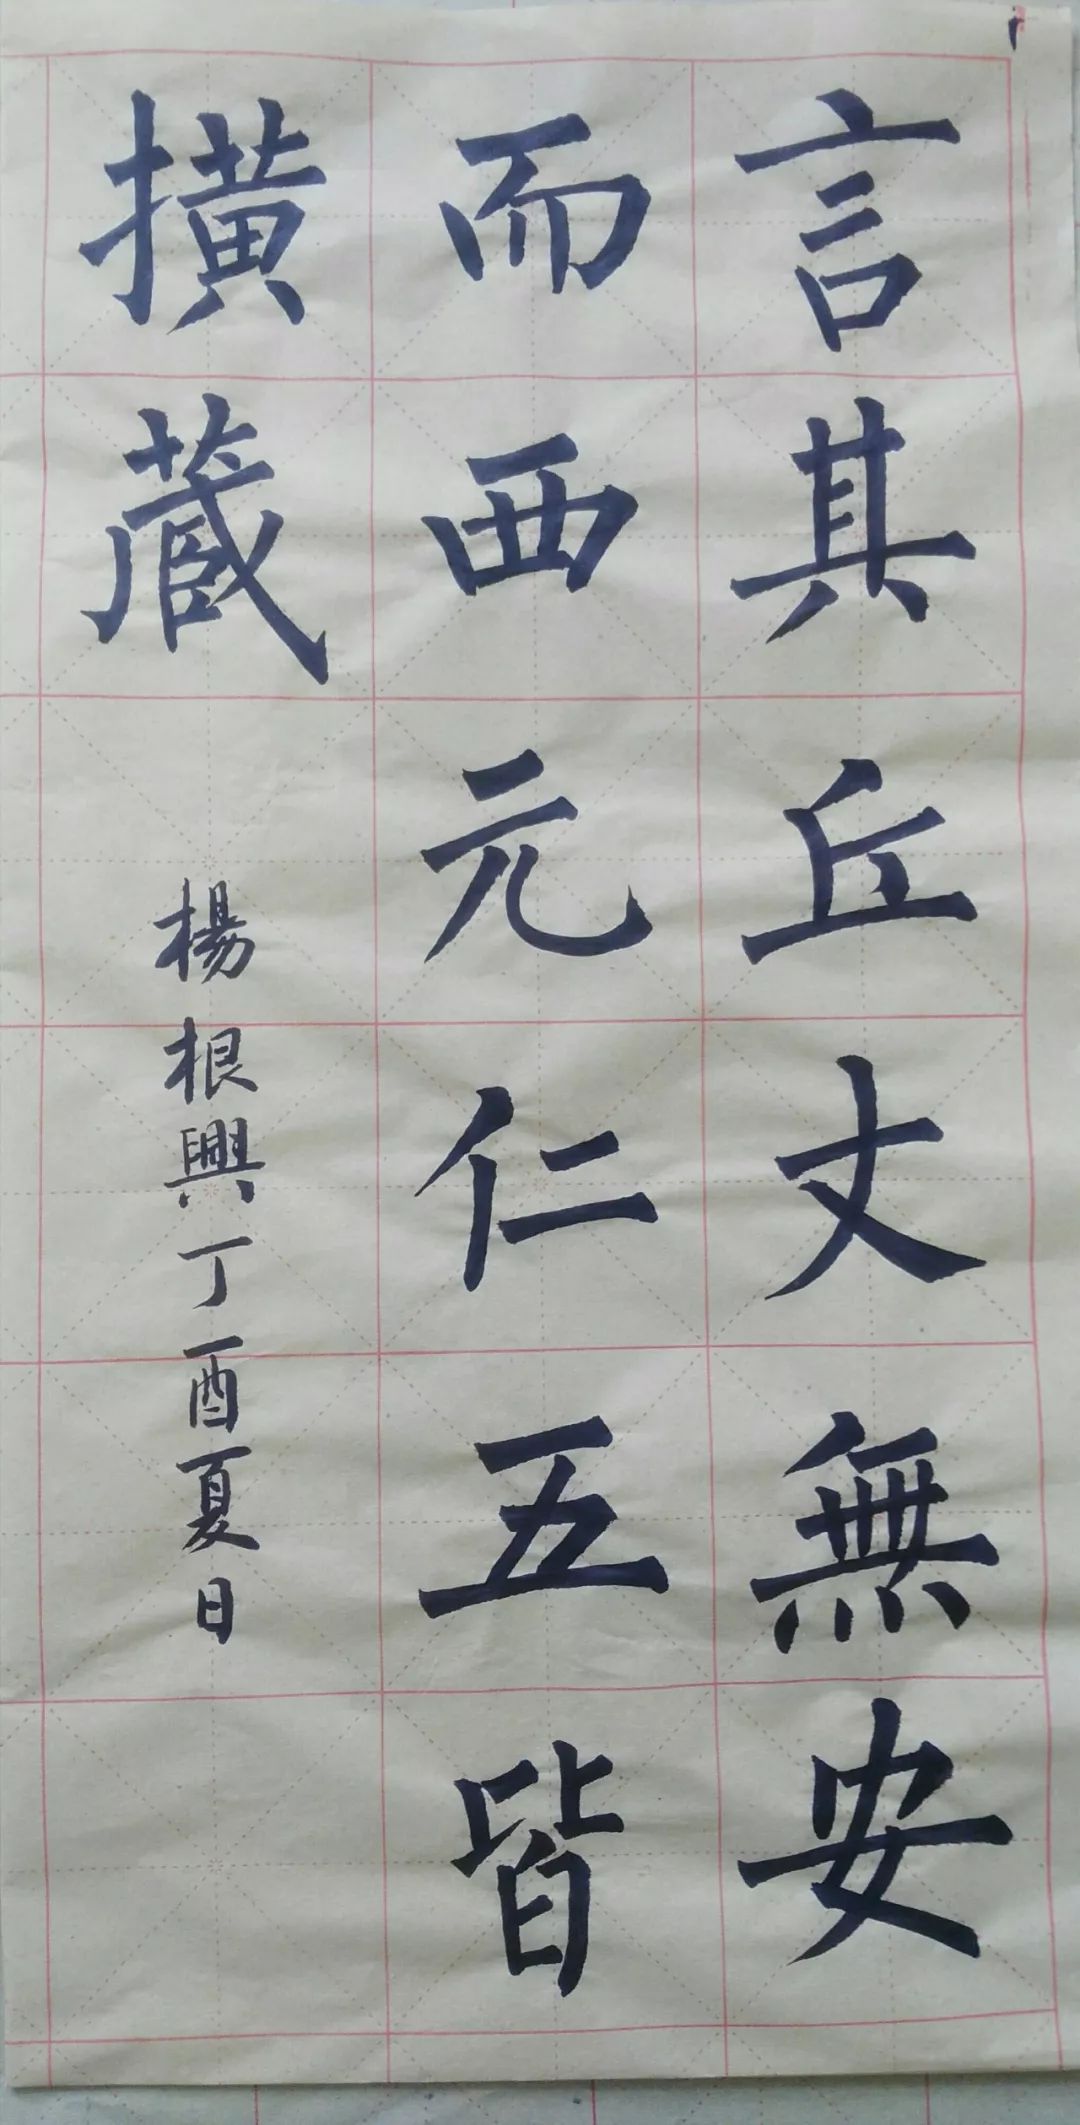 言其丘丈無安
而西元仁五皆
撗蔵
楊根興丁酉夏日